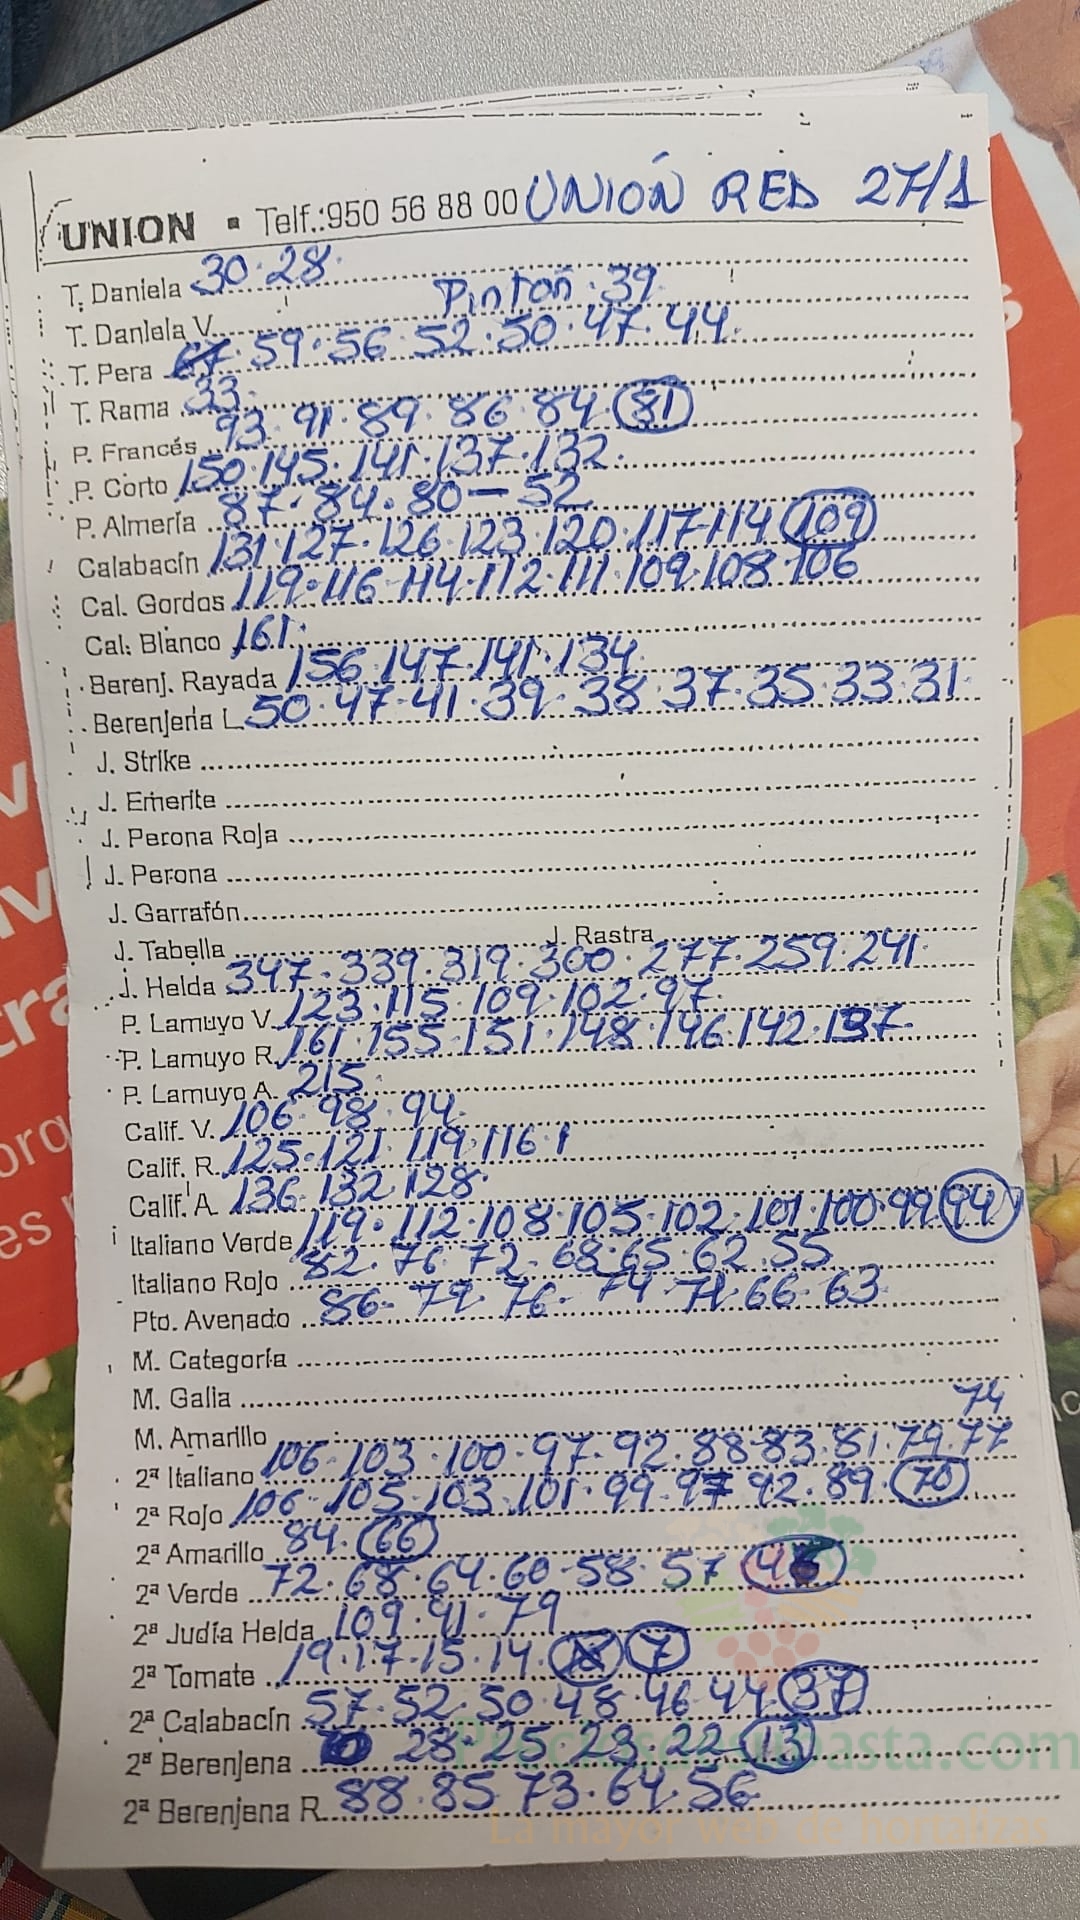 UNION ▪ Telf.:950 56 88 00 UNIÓN RED 27/1
T. Daniela 30·28·
T. Daniela V. Pintón·39
T. Pera 67·59·56·52·50·47·44·
T. Rama 33·
P. Francés 93·91·89·86·84·81
P. Corto 150·145·141·137·132·
P. Almería 87·84·80—52
Calabacín 131·127·126·123·120·117·114 109
Cal. Gordos 119·116·114·112·111·109·108·106
Cal. Blanco 161·
Berenj. Rayada 156·147·141·134
Berenjena L 50·47·41·39·38·37·35·33·31·
J. Strike
J. Emerite
J. Perona Roja
J. Perona
J. Garrafón
J. Tabella J. Rastra
J. Helda 347·339·319·300·277·259·241
P. Lamuyo V. 123·115·109·102·97·
P. Lamuyo R. 161·155·151·148·146·142·137·
P. Lamuyo A. 215
Calif. V. 106·98·94·
Calif. R. 125·121·119·116·
Calif. A. 136·132·128·
Italiano Verde 119·112·108·105·102·101·100·99 94
Italiano Rojo 82·76·72·68·65·62·55
Pto. Avenado 86·79·76·74·71·66·63
M. Categoría
M. Galia
M. Amarillo 74
2ª Italiano 106·103·100·97·92·88·83·81·79·77
2ª Rojo 106·105·103·101·99·97·92·89·70
2ª Amarillo 84·66
2ª Verde 72·68·64·60·58·57
2ª Judía Helda 109·91·79
2ª Tomate 19·17·15·14· 7
2ª Calabacín 57·52·50·48·46·44·37
2ª Berenjena 28·25·23·22·13
2ª Berenjena R. 88·85·73·64·56
Preciosensubasta.com
La mayor web de hortalizas